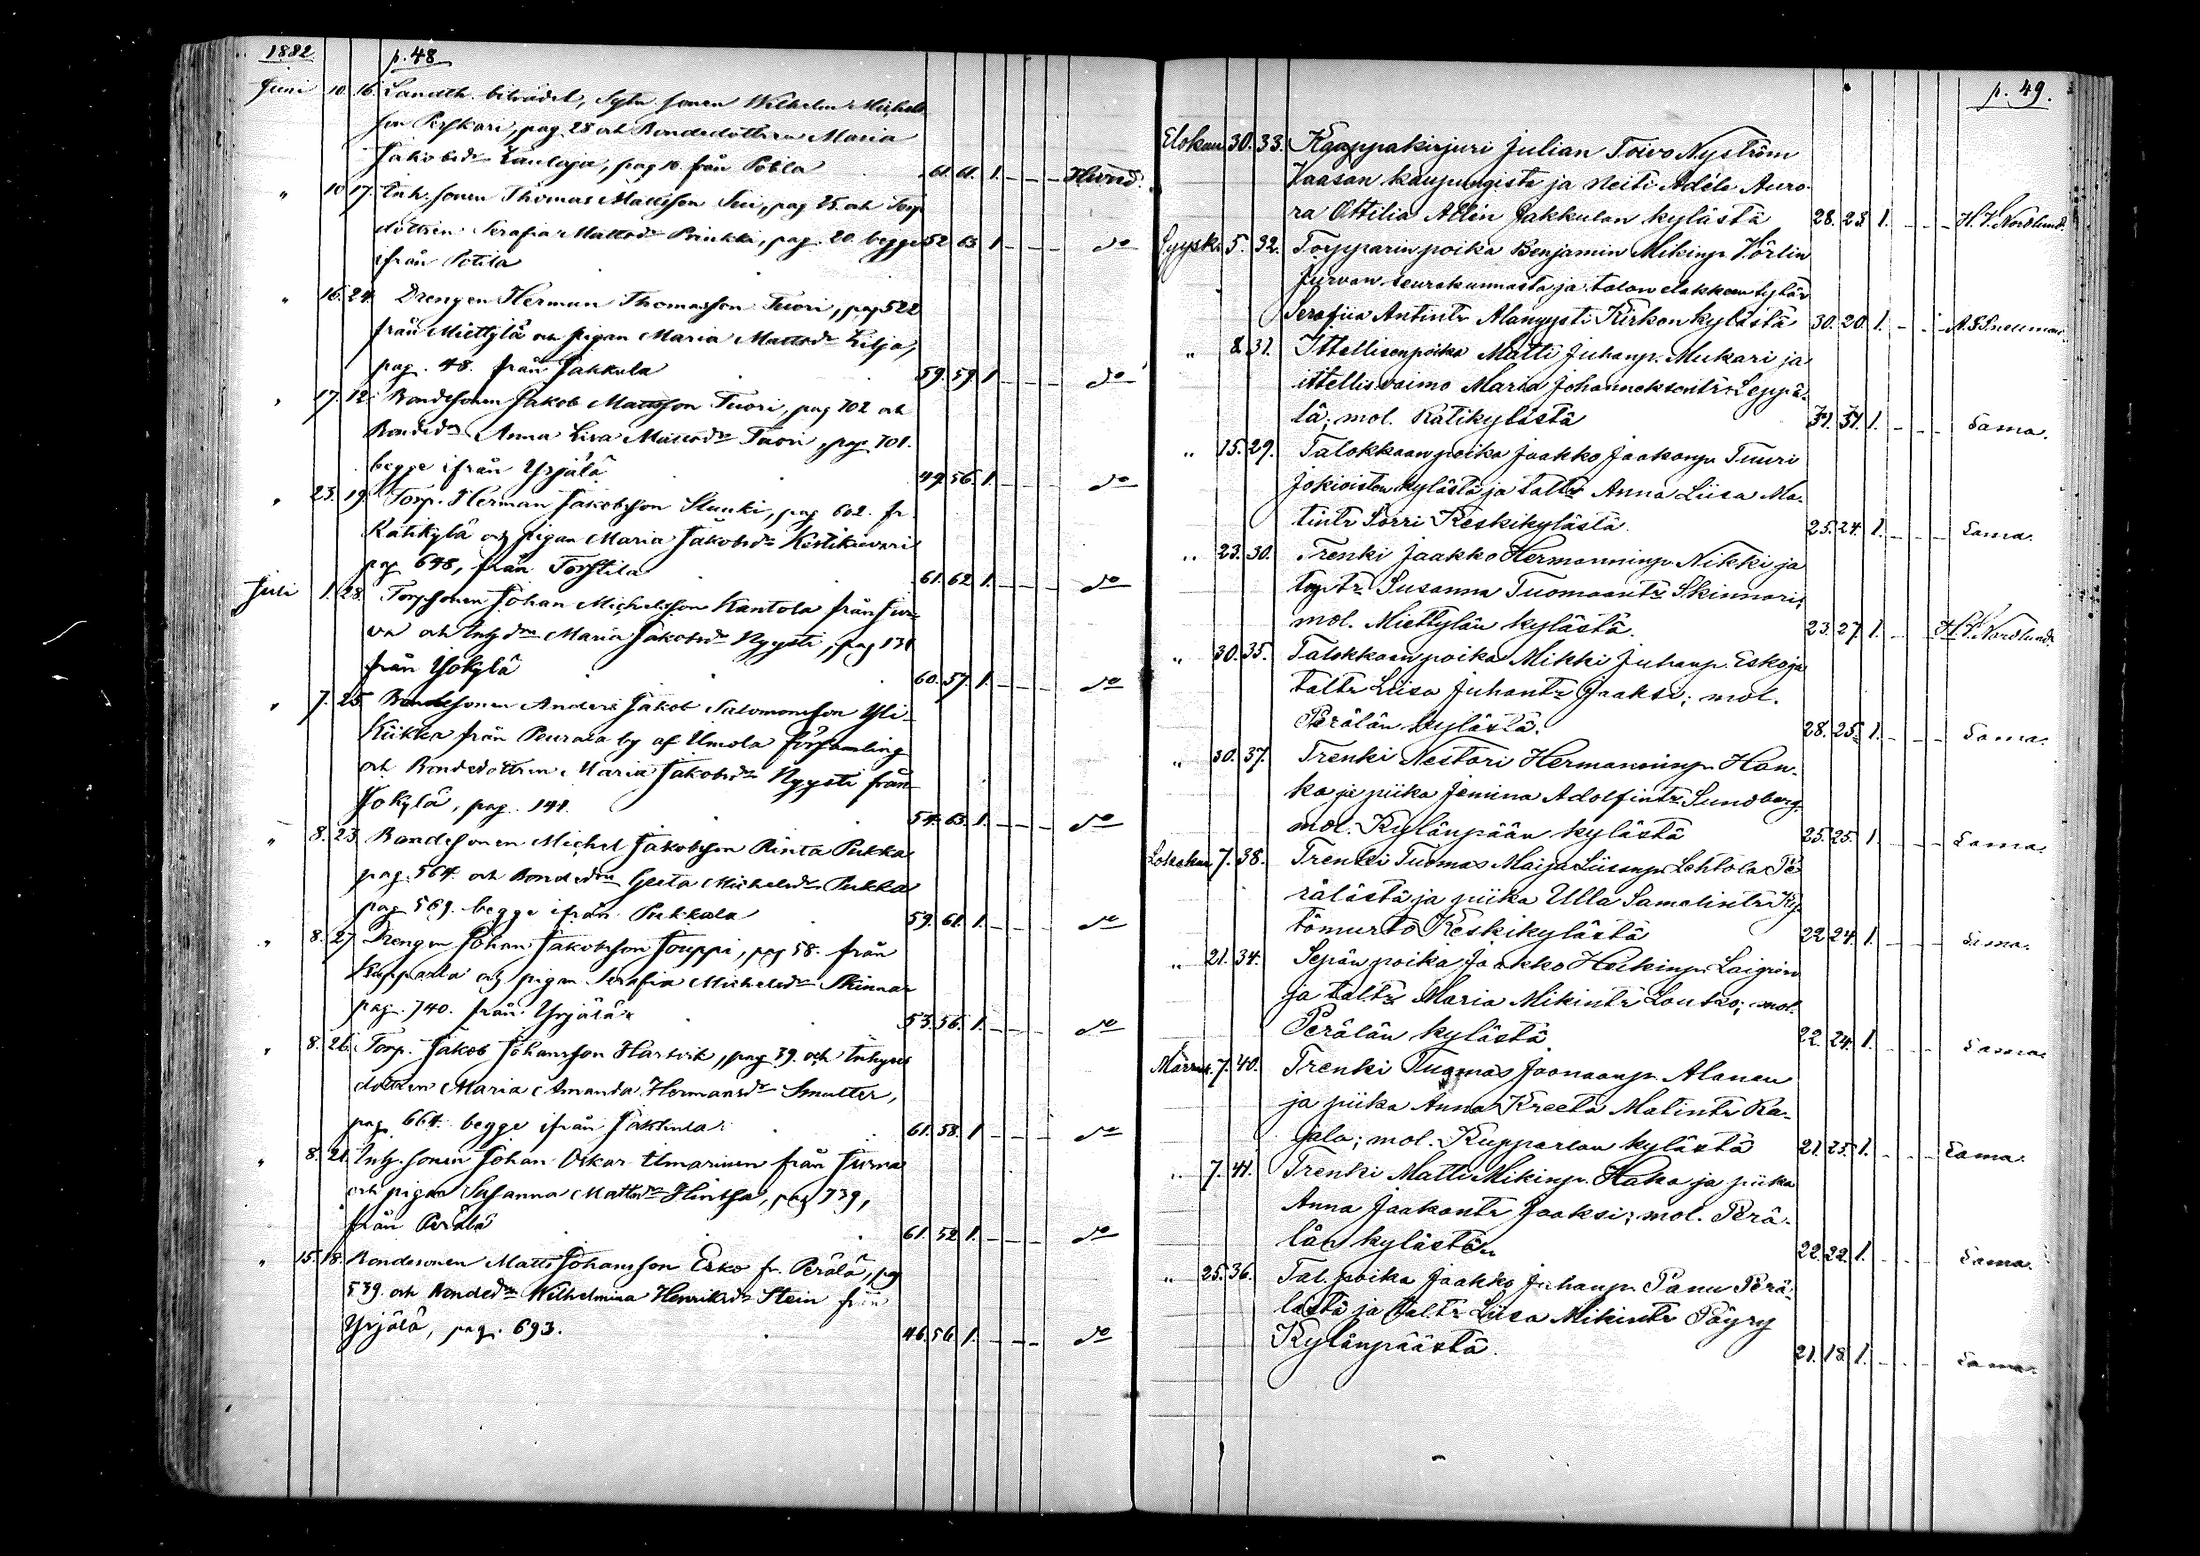 1882 p. 48
Juni 10. 16. Landth. biträdet, Sytn. sonen Wilhelm Michels
son Perskari, pag 28 och Bondedottren Maria
Jakobsdr Laulaja, pag 10 från Potila 61. 61. 1. – – – Hund.
" 10 17. Inh. sonen Thomas Mattsson Sui, pag 25. och Torp
dottren Serafia Mattsdr Prinkki, pag. 20. begge 52 63 1 – – – do
ifrån Potila
" 16. 24. Drengen Herman Thomasson Tuori, pag 522
från Miettylä och pigan Maria Mattsdr Lilja,
pag. 48. från Jakkula 59. 59 1 – – – do
" 17. 12. Bondesonen Jakob Mattsson Tuori, pag 702 och
Bonded. Anna Lisa Mattsdr Tuori, pag 701.
begge ifrån Yrjälä 49. 56. 1. – – – do
" 23. 19. Torp. Herman Jakobsson Sluuki, pag 602. fr.
Ratikylä och pigan Maria Jakobsdr Kestikievari
pag 648, från Torstila 61. 62. 1. – – – do
Juli 1. 28. Torpsonen Johan Michelsson Kantola från Jur-
va och Inhdrn Maria Jakobsdr Nyysti, pag 131
från Jokylä 60. 57. 1. – – – do
" 7. 25. Bondesonen Anders Jakob Salomonsson Yli-
Kiikka från Peurala by af Ilmola församling
och Bondedottren Maria Jakobsdr Nyysti från
Jokylä, pag. 141. 54. 63. 1. – – – do
" 8. 23. Bondesonen Michel Jakobsson Rinta Pukka
pag. 564. och Bondedrn Greta Michelsdr Pukka
pag 569. begge ifrån Pukkala 59. 61. 1. – – – do
" 8. 27. Drengen Johan Jakobsson Jouppi, pag 58. från
Kupparla och pigan Serafia Michelsdr Skinnar
pag. 740. från Yrjälä 53. 56. 1. – – – do
" 8. 26. Torp. Jakob Johansson Harvik, pag 39. och Inhyses
dottren Maria Amanda Hermansdr Smutter,
pag. 664. begge ifrån Jakkula 61. 58. 1 – – – do
" 8. 21. Inh. sonen Johan Oskar Ilmarinen från Jurva
och pigan Susanna Mattsdr Hintsa, pag 739,
från Perälä 61. 52 1. – – – do
" 15. 18. Bondesonen Matts Johansson Esko fr. Perälä, pag
539. och Bondedrn Wilhelmina Henriksdr Stein från
Yrjälä, pag. 693. 46. 56. 1. – – – do
p. 49.
Elokuu 30. 33. Kauppakirjuri Julian Toivo Nyström
Vaasan kaupungista ja Neiti Adéle Auro-
ra Ottilia Allén Jakkulan kylästä 28. 23. 1. – – – H. F. Nordlund.
Syysk. 5. 32. Torpparin poika Benjamin Mikinp. Hörlin
Jurvan seurakunnasta ja talon elakkaan tytär
Serafiia Antintr Alanyysti Kirkon kylästä 30. 20. 1. – – –
" 8. 31. Ittellisenpoika Matti Juhanp. Mukari ja
ittellis.vaimo Maria Johanneksentr Leppä-
lä; mol. Ratikylästä 31. 31. 1. – – – Sama.
" 15. 29. Talokkaanpoika Jaakko Jaakonp. Tuuri
Jokioisten kylästä ja taltr Anna Liisa Ma-
tintr Sorri Keskikylästä 25. 24. 1. – – – Sama.
" 23. 30. Trenki Jaakko Hermanninp. Nikki ja
torptr. Susanna Tuomaantr Skinnari;
mol. Miettylän kylästä. 23. 27. 1. – – H. F. Nordlund.
" 30. 35. Talokkaan poika Mikki Juhanp. Esko ja
taltr Liisa Juhantr Jaaksi; mol.
Perälän kylästä. 28. 25. 1. – – – Sama.
" 30. 37. Trenki Nestori Hermanninp. Han-
ka ja piika Jemina Adolfintr Sundberg
mol. Kylänpään kylästä 25. 25. 1 – – – Sama.
Lokakuu 7. 38. Trenki Tuomas Maija Liisanp. Lehtola Pe-
rälästä ja piika Ulla Samolintr Ky-
tömurto Keskikylästä 22 24. 1. – – – Sama.
" 21. 34. Sepän poika Jaakko Heikinp. Laigren
ja taltr Maria Mikintr Loutko; mol.
Perälän kylästä. 22. 24. 1. – – – Sama.
Marrask. 7. 40. Trenki Tuomas Joonaanp. Alanen
ja piika Anna Kreeta Matintr Ra-
jala; mol. Kupparlan kylästä 21. 25. 1. – – – Sama.
" 7. 41. Trenki Matti Mikinp. Haka ja piika
Anna Jaakontr Jaaksi; mol. Perä-
län kylästä 22. 22. 1. – – – Sama.
" 25. 36. Tal. poika Jaakko Juhanp. Panu Perä-
lästä ja taltr Liisa Mikintr Päyry
Kylänpäästä. 21. 18. 1. – – – Sama.